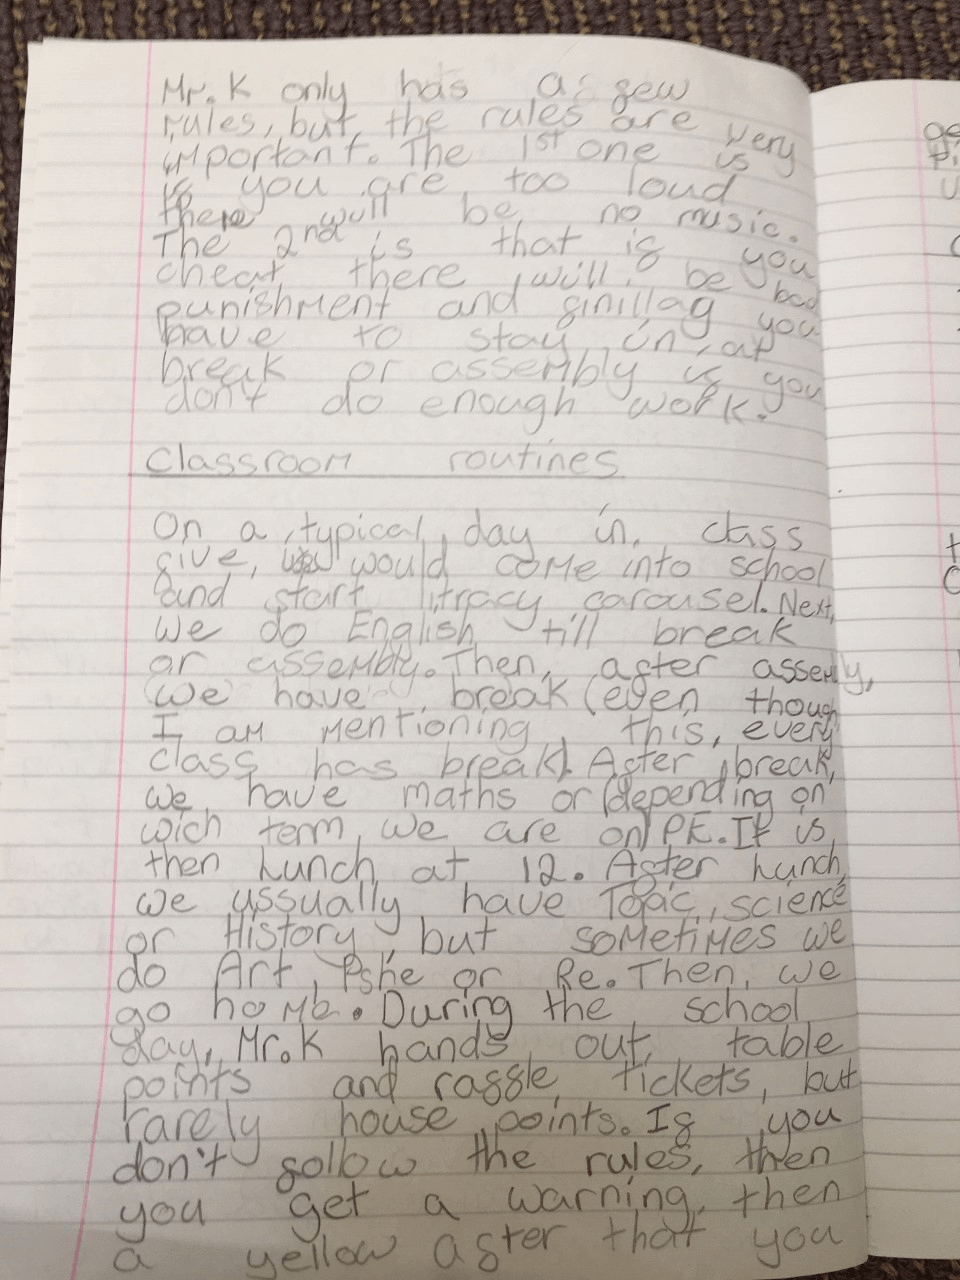 Mr. K only has a few
rules, but, the rules are very
important. The 1st one is
if you are too loud
there will be no music.
The 2nd is that if you
cheat there will be bad
punishment and finillag you
have to stay in at
break or assembly if you
don't do enough work.
Classroom routines
On a typical day in, class
five, would come into school
and start litracy carousel. Next,
we do English till break
or assembly. Then, after assemly,
we have break (even though
I am mentioning this, every
class has break). After break,
we have maths or (depending on
wich term we are on) PE. It is
then lunch at 12. After lunch
we ussually have Topic, science
or History, but sometimes we
do Art, Pshe or Re. Then, we
go home. During the school
day, Mr. K hands out table
points and raffle tickets, but
rarely house points. If you
don't follow the rules, then
you get a warning, then
a yellow after that you